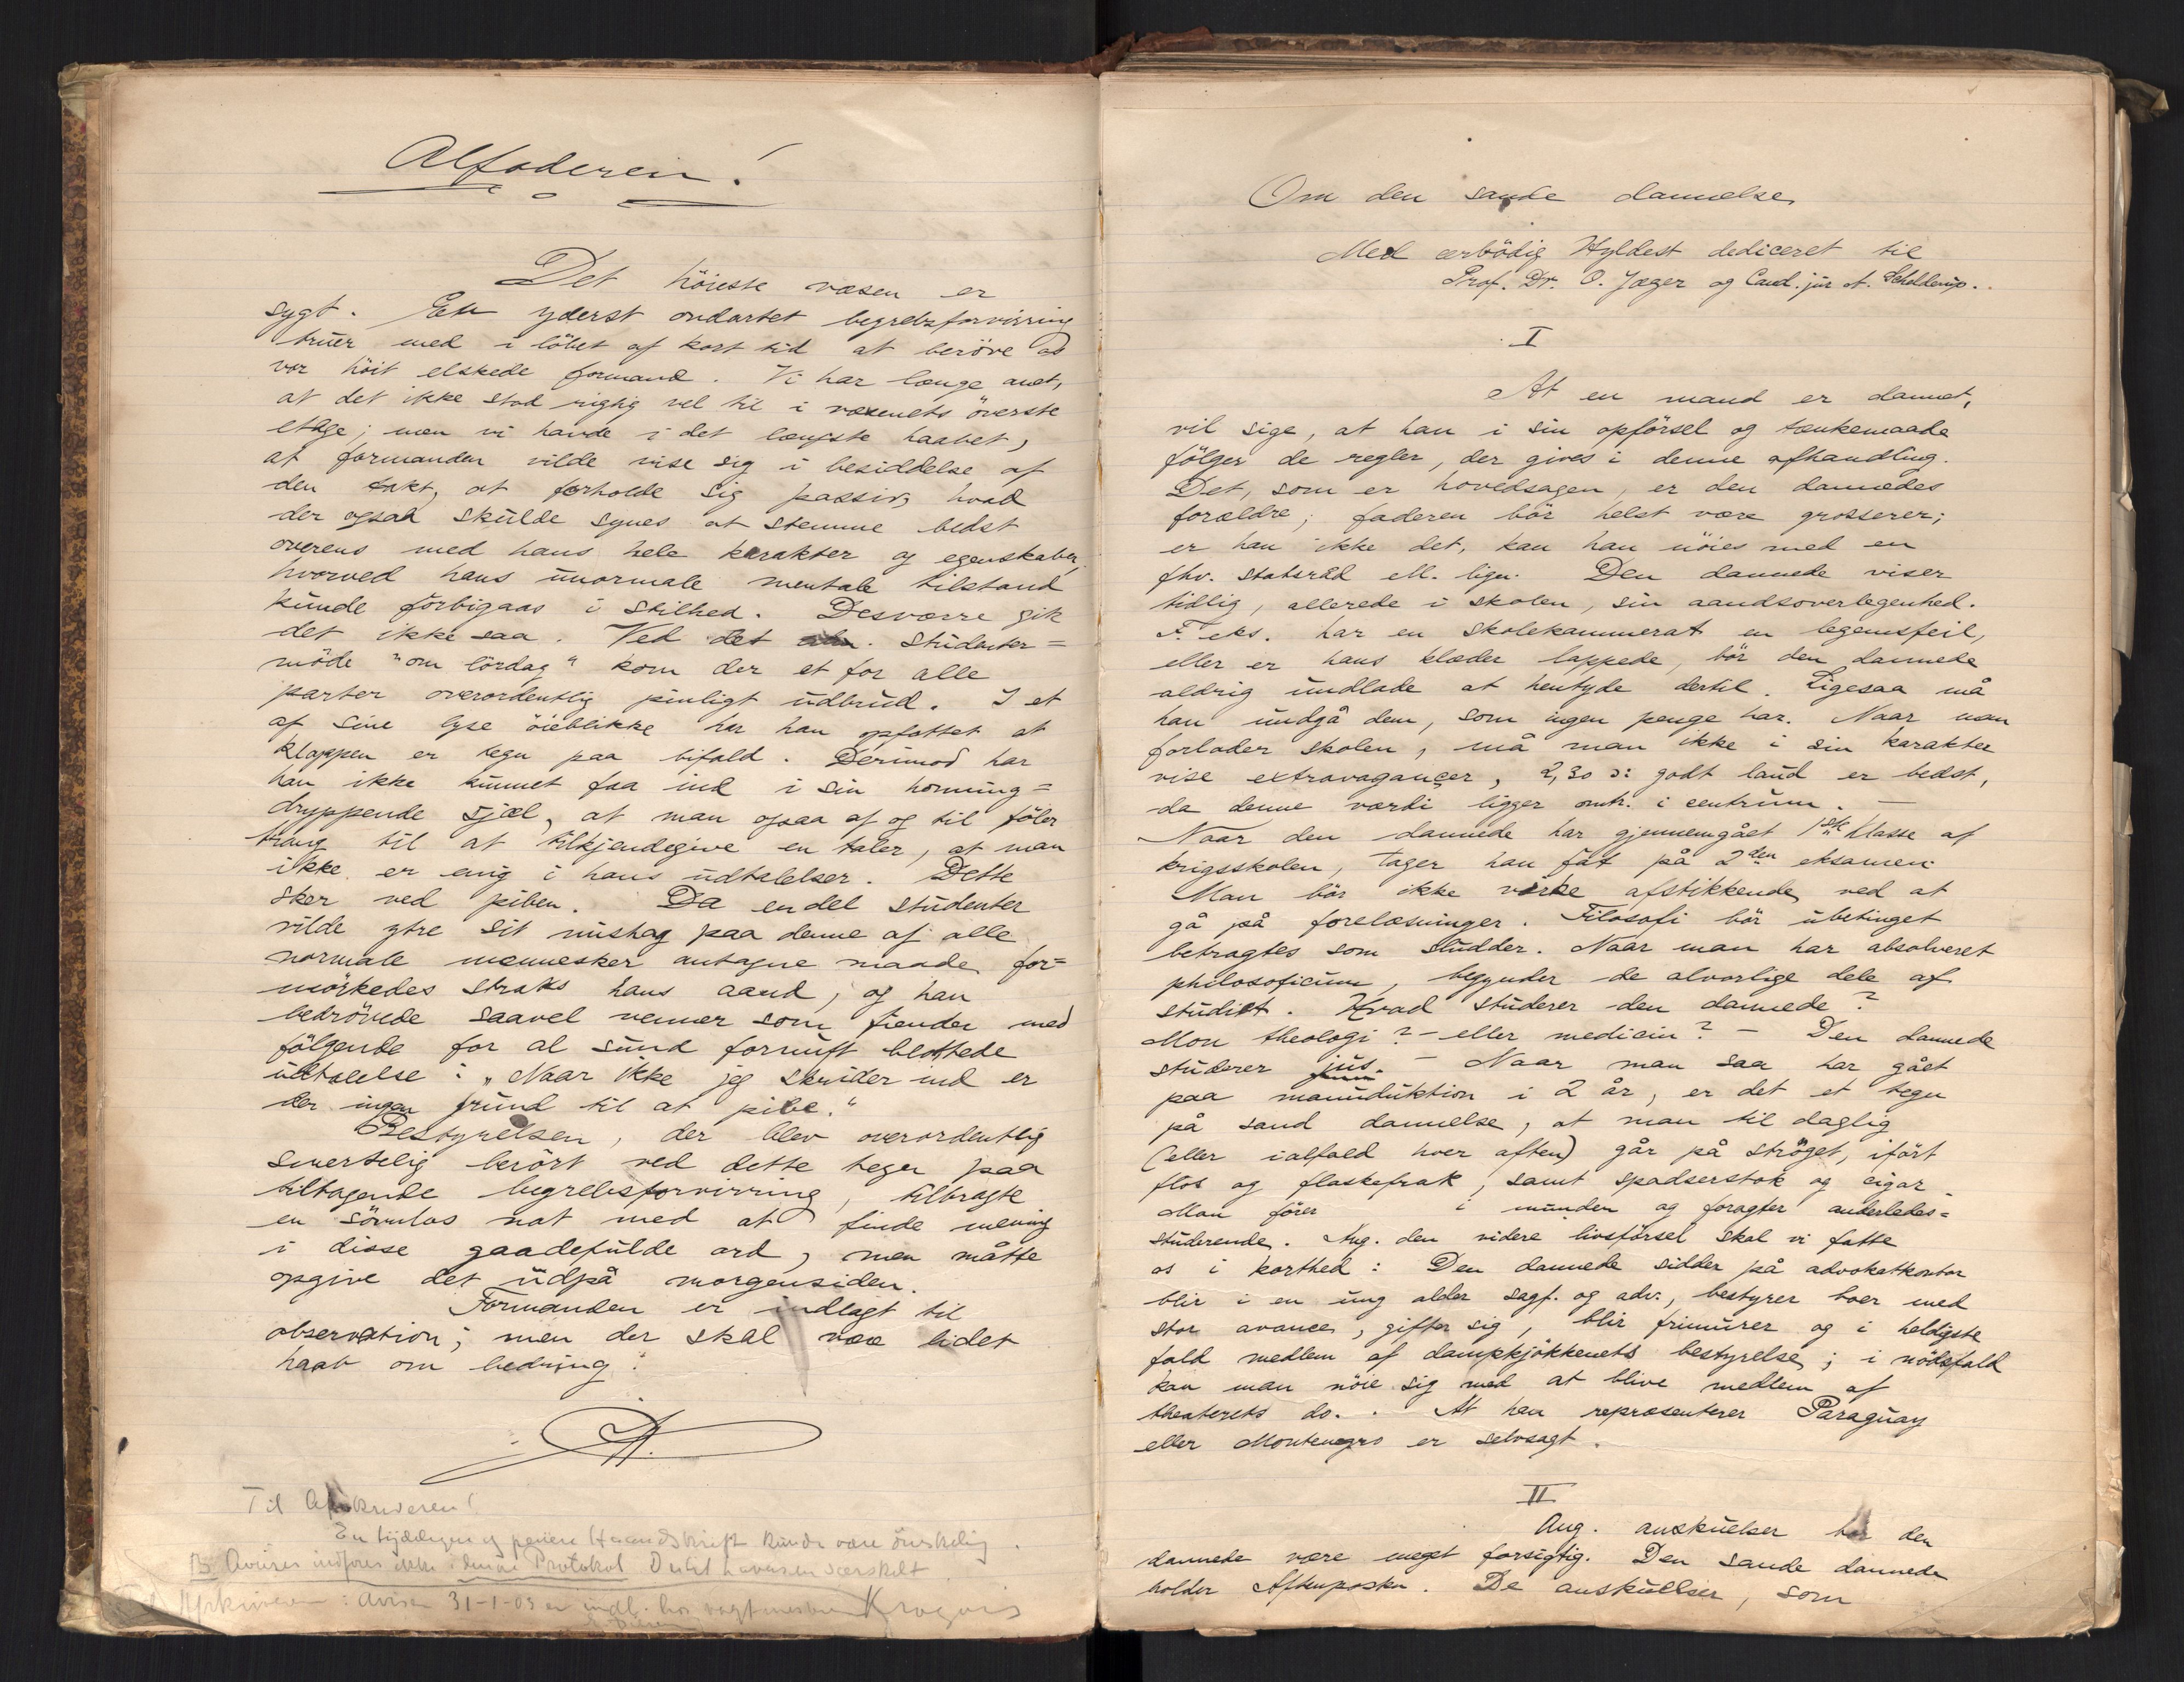 Alfaderen!
Det höieste væsen er
sygt. En yderst ondartet begrebsforvirring
truer med i löbet af kort tid at beröve os
vor höit elskede formand. Vi har længe anet,
at det ikke stod rigtig vel til i væsenets överste
etage; men vi havde i det længste haabet,
at formanden vilde vise sig i besiddelse af
den takt, at forholde sig passiv, hvad
der ogsaa skulde synes at stemme bedst
overens med hans hele karakter og egenskaber,
hvorved hans unormale mentale tilstand
kunde forbigaas i stilhed. Desværre gik
det ikke saa. Ved det alm. studenter=
möde "om lördag" kom der et for alle
parter overordentlig pinligt udbrud. I et
af sine lyse öieblikke har han opfattet at
klappen er tegn paa bifald. Derimod har
han ikke kunnet faa ind i sin honning=
dryppende sjæl, at man ogsaa af og til föler
trang til at tilkjendegive en taler, at man
ikke er enig i hans udtalelser. Dette
sker ved piben. Da endel studenter
vilde ytre sit mishag paa denne af alle
normale mennesker antagne maade, for=
mörkedes straks hans aand, og han
bedrövede saavel venner som fiender med
fölgende for al sund fornuft blottede
udtalelse: "Naar ikke jeg skrider ind er
der ingen grund til at pibe."
Bestyrelsen, der blev overordentlig
smertelig berört ved dette tegn paa
tiltagende begrebsforvirring, tilbragte
en sövnlös nat med at finde mening
i disse gaadefulde ord, men måtte
opgive det udpå morgensiden.
Formanden er indlagt til
observation; men der skal være lidet
haab om bedring.
A.
Til Afskriveren!
En tydeligere og penere Haandskrift kunde være önskelig.
B Aviser indføres ikke i denne Protokol Dertil haves en særskilt
Afskriveren: Avisen 31-1-03 er indl. hos vagtmesteren Krogvis
Om den sande dannelse
Med ærbödig Hyldest dediceret til
Prof. Dr. O. Jæger og Cand. jur A. Scheldrup.
I
At en mand er dannet,
vil sige, at han i sin opförsel og tænkemaade
fölger de regler, der gives i denne afhandling.
Det, som er hovedsagen, er den dannedes
forældre; faderen bör helst være grosserer;
er han ikke det, kan han nöies med en
fhv. statsråd ell. lign. Den dannede viser
tidlig, allerede i skolen, sin aandsoverlegenhed.
F. eks. har en skolekammerat en legemsfeil,
eller er hans klæder lappede, bör den dannede
aldrig undlade at hentyde dertil. Ligesaa må
han undgå dem, som ingen penge har. Naar man
forlader skolen, må man ikke i sin karakter
vise extravagançer, 2,30 ɔ: godt laud er bedst,
da denne værdi ligger omtr. i centrum. —
Naar den dannede har gjennemgået 1ste klasse af
krigsskolen, tager han fat på 2den eksamen.
Man bör ikke virke afstikkende, ved at
gå på forelæsninger. Filosofi bör ubetinget
betragtes som sludder. Naar man har absolveret
philosoficum, begynder de alvorlige dele af
studiet. Hvad studerer den dannede?
Mon theologi? – eller medicin? – Den dannede
studerer jus. – Naar man saa har gået
paa manuduktion i 2 år, er det et tegn
på sand dannelse, at man til daglig
(eller ialfald hver aften) går på ströget, ifört
flos og flaskefrak, samt spadserstok og cigar.
Man förer i munden og foragter anderledes=
studerende. Ang. den videre livsförsel skal vi fatte
os i korthed: Den dannede sidder på advokatkontor
blir i en ung alder sagf. og adv., bestyrer boer med
stor avance, gifter sig, blir frimurer og i heldigste
fald medlem af dampkjökkenets bestyrelse; i nödsfald
kan man nöie sig med at blive medlem af
theaterets do.. At han repræsenterer Paraguay
eller Montenegro er selvsagt.
II
Ang. anskuelser bör den
dannede være meget forsigtig. Den sande dannede
holder Aftenposten. De anskuelser, som